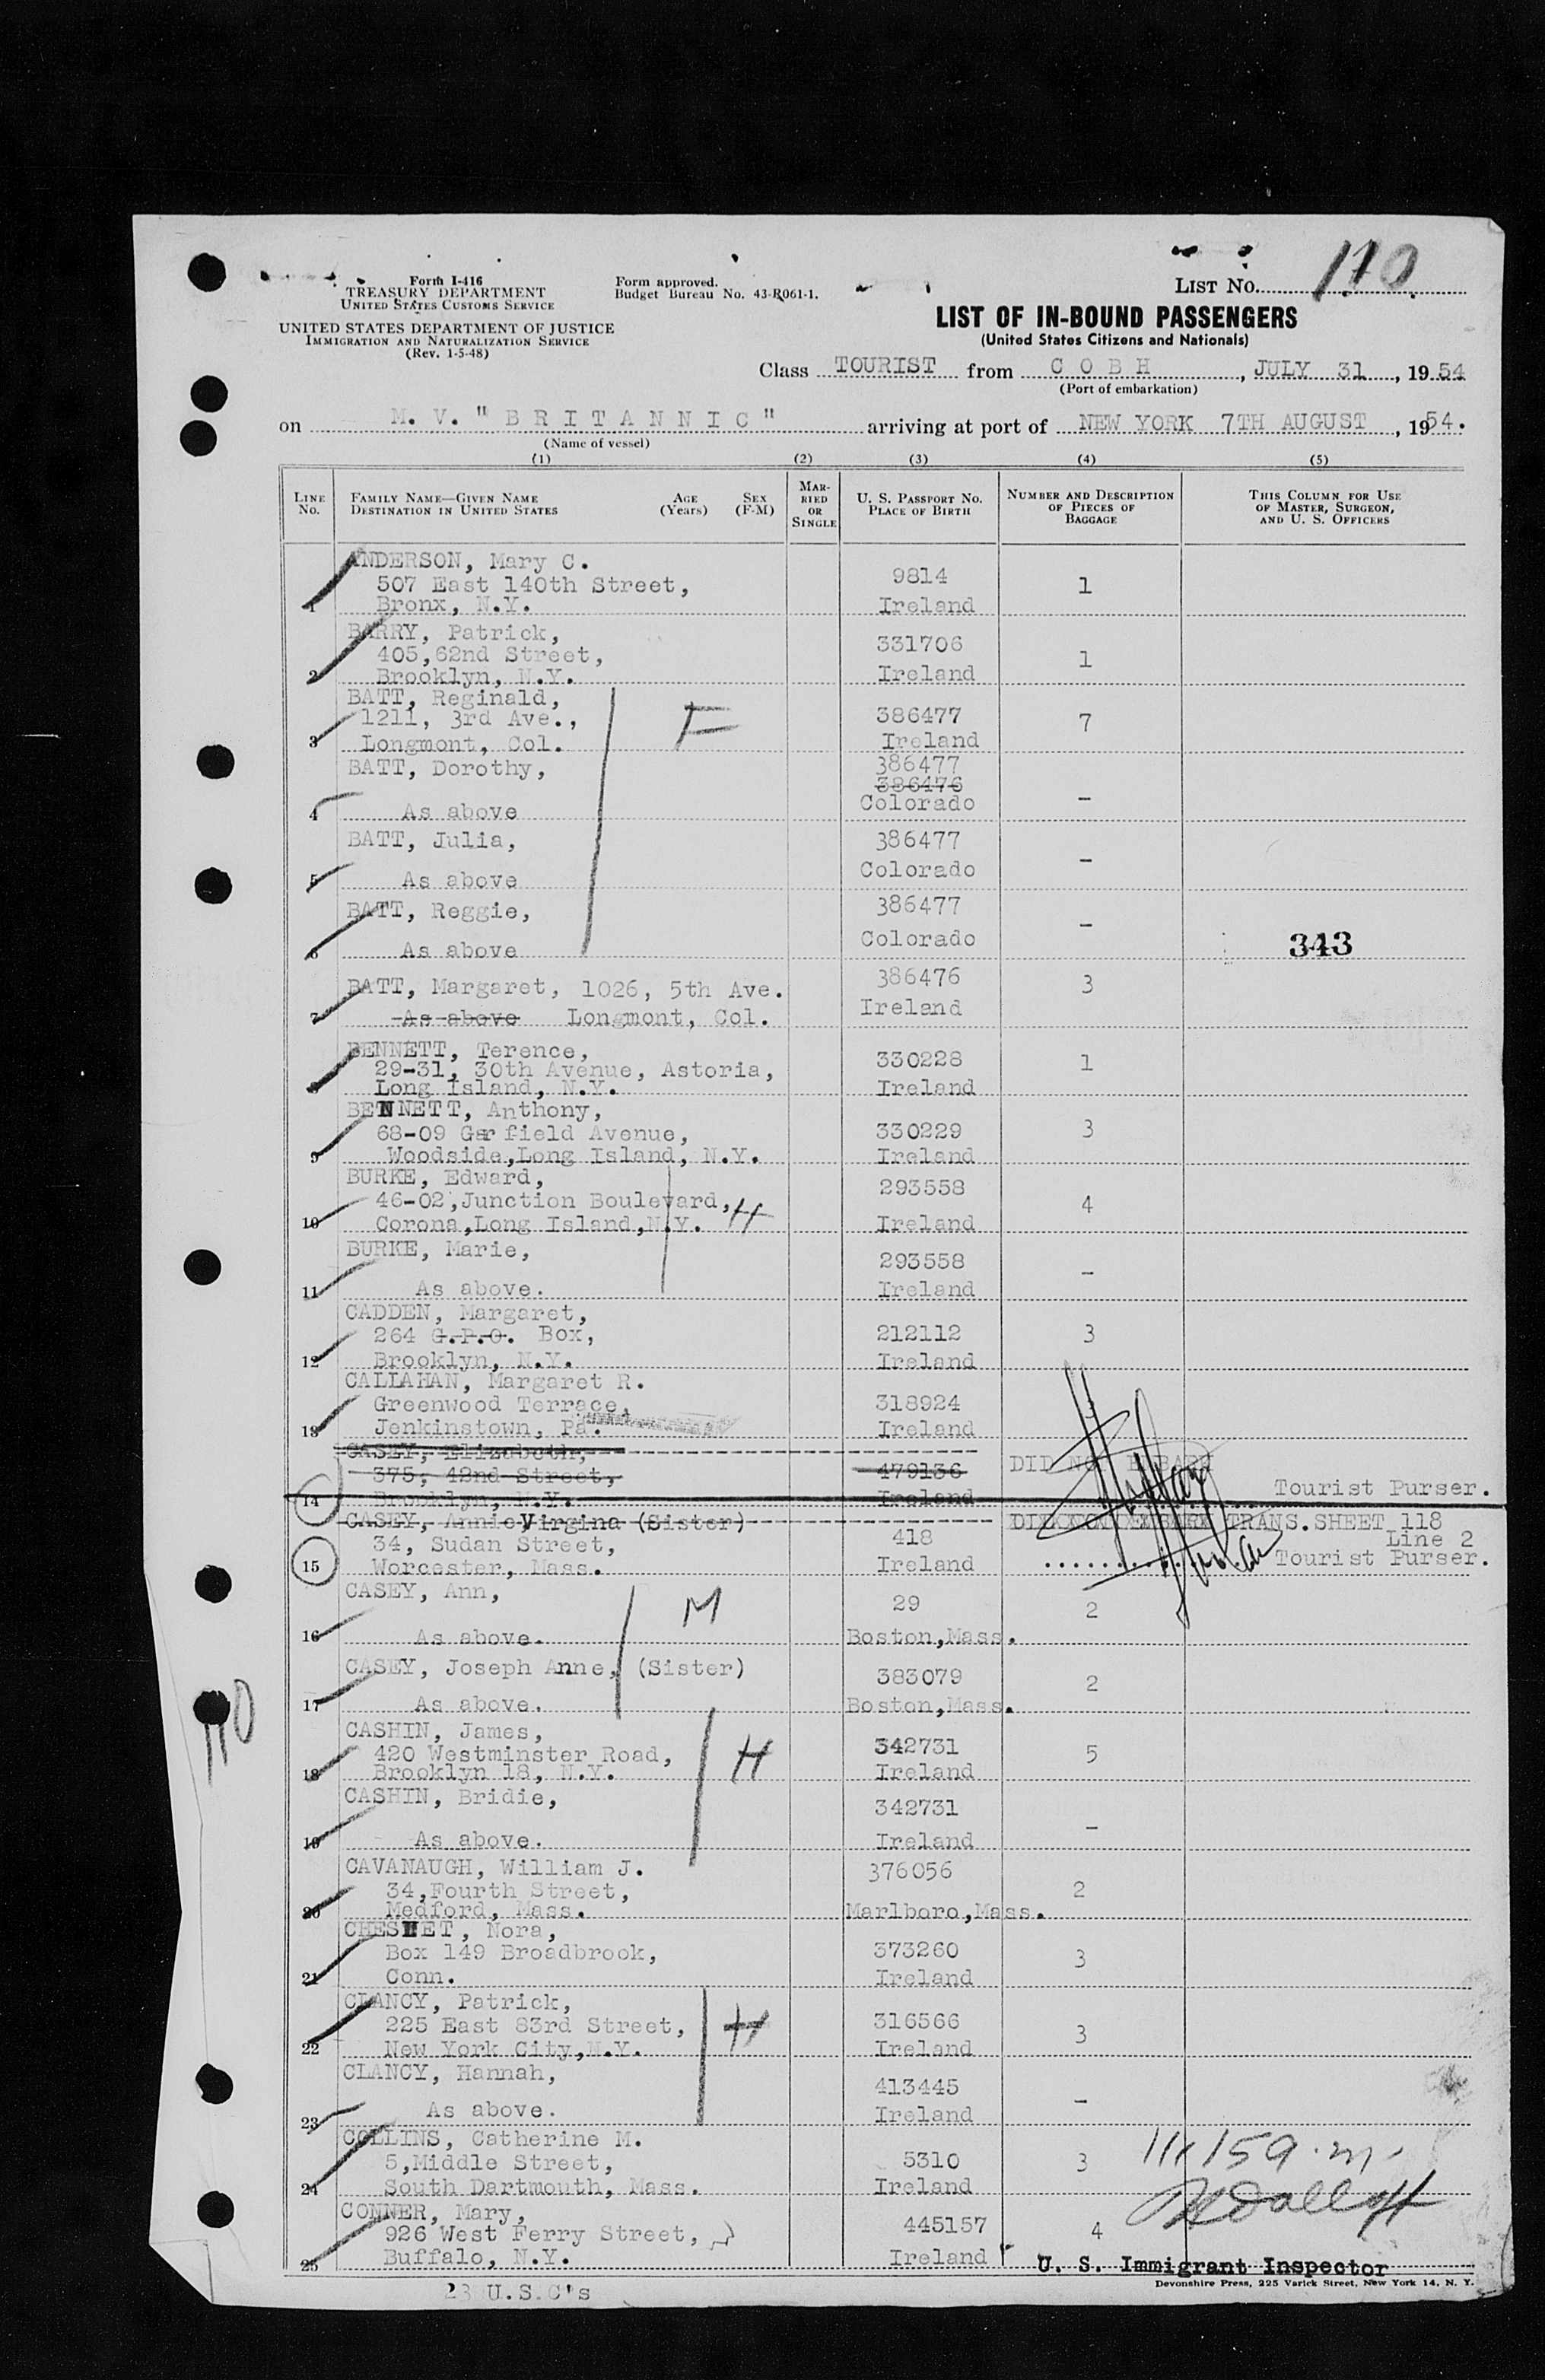 Form I-416
TREASURY DEPARTMENT
UNITED STATES CUSTOMS SERVICE
UNITED STATES DEPARTMENT OF JUSTICE
IMMIGRATION AND NATURALIZATION SERVICE
(Rev. 1-5-48)
Form approved.
Budget Bureau No. 43-R061-1.
LIST NO. 110
LIST OF IN-BOUND PASSENGERS
(United States Citizens and Nationals)
Class TOURIST from C O B H, JULY 31, 19 54
(Port of embarkation)
on M. V. "B R I T A N N I C" arriving at port of NEW YORK 7TH AUGUST, 19 54.
(Name of vessel)
(1) (2) (3) (4) (5)
LINE NO. FAMILY NAME—GIVEN NAME DESTINATION IN UNITED STATES AGE (Years) SEX (F-M) MARRIED OR SINGLE U. S. PASSPORT NO. PLACE OF BIRTH NUMBER AND DESCRIPTION OF PIECES OF BAGGAGE THIS COLUMN FOR USE OF MASTER, SURGEON, AND U. S. OFFICERS
ANDERSON, Mary C.
507 East 140th Street, 9814 1
1 Bronx, N.Y. Ireland
BARRY, Patrick,
405,62nd Street, 331706 1
2 Brooklyn, N.Y. Ireland
BATT, Reginald,
1211, 3rd Ave., F 386477 7
3 Longmont, Col. Ireland
BATT, Dorothy, 386477
386476
4 As above Colorado -
BATT, Julia, 386477
5 As above Colorado -
BATT, Reggie, 386477
6 As above Colorado - 343
BATT, Margaret, 1026, 5th Ave. 386476 3
7 As above Longmont, Col. Ireland
BENNETT, Terence,
29-31, 30th Avenue, Astoria, 330228 1
8 Long Island, N.Y. Ireland
BENNETT, Anthony,
68-09 Garfield Avenue, 330229 3
9 Woodside,Long Island, N.Y. Ireland
BURKE, Edward,
46-02,Junction Boulevard, H 293558 4
10 Corona,Long Island,N.Y. Ireland
BURKE, Marie, 293558
11 As above. Ireland -
CADDEN, Margaret,
264 G.P.O. Box, 212112 3
12 Brooklyn, N.Y. Ireland
CALLAHAN, Margaret R.
Greenwood Terrace, 318924 3
13 Jenkinstown, Pa. Ireland
CASEY, Elizabeth,
375, 42nd Street, 479136 DID NOT EMBARK
14 Brooklyn, N.Y. Ireland Tourist Purser.
CASEY, Annie Virgina (Sister) DID NOT EMBARK TRANS. SHEET 118
34, Sudan Street, 418 Line 2
15 Worcester, Mass. Ireland Tourist Purser.
CASEY, Ann, M 29 2
16 As above. Boston,Mass.
CASEY, Joseph Anne, (Sister) 383079 2
17 As above. Boston,Mass.
110
CASHIN, James,
420 Westminster Road, H 342731 5
18 Brooklyn 18, N.Y. Ireland
CASHIN, Bridie, 342731
19 As above. Ireland -
CAVANAUGH, William J. 376056
34,Fourth Street, 2
20 Medford, Mass. Marlboro,Mass.
Nora,
Box 149 Broadbrook, 373260 3
21 Conn. Ireland
CLANCY, Patrick,
225 East 83rd Street, H 316566 3
22 New York City,N.Y. Ireland
CLANCY, Hannah, 413445
23 As above. Ireland -
COLLINS, Catherine M.
5,Middle Street, 5310 3
24 South Dartmouth, Mass. Ireland
CONNER, Mary,
926 West Ferry Street, 445157 4
25 Buffalo, N.Y. Ireland
U. S. Immigrant Inspector
Devonshire Press, 225 Varick Street, New York 14, N. Y.
23 U.S.C's